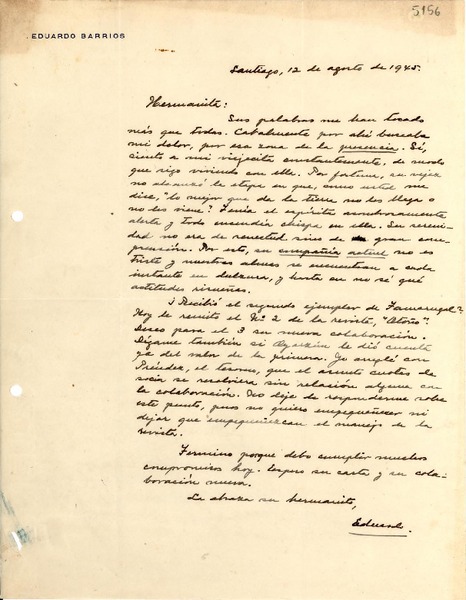 5156
EDUARDO BARRIOS
Santiago, 12 de agosto de 1945.
Hermanita:
Sus palabras me han tocado
más que todas. Cabalmente por ahí buscaba
mi dolor, por esa zona de la presencia. Sí,
siento a mi viejecita constantemente, de modo
que sigo viviendo con ella. Por fortuna, su vejez
no alcanzó la etapa en que, como usted me
dice, "lo mejor que da la tierra no les llega o
no les viene". Tenía el espíritu asombrosamente
alerta y todo encendía chispa en ella. Su sereni-
dad no era de senectud sino de gran com-
prensión. Por esto, su compañía actual no es
triste y nuestras almas se encuentran a cada
instante en dulzura, y hasta en no sé qué
actitudes risueñas.
¿Recibió el segundo ejemplar de Tamarugal?
Hoy le remito el N° 2 de la revista, "Otoño".
Deseo para el 3 su nueva colaboración.
Dígame también si le dió cuenta
ya del valor de la primera. Yo arreglé con
el tesorero, que el asunto cuotas de
socia se resolviera sin relación alguna con
la colaboración. No deje de responderme sobre
este punto, pues no quiero empequeñecer ni
dejar que empequeñezcan el manejo de la
revista.
Termino porque debo cumplir muchos
compromisos hoy. Espero su carta y su cola-
boración nueva.
La abraza su hermanito,
Eduardo.